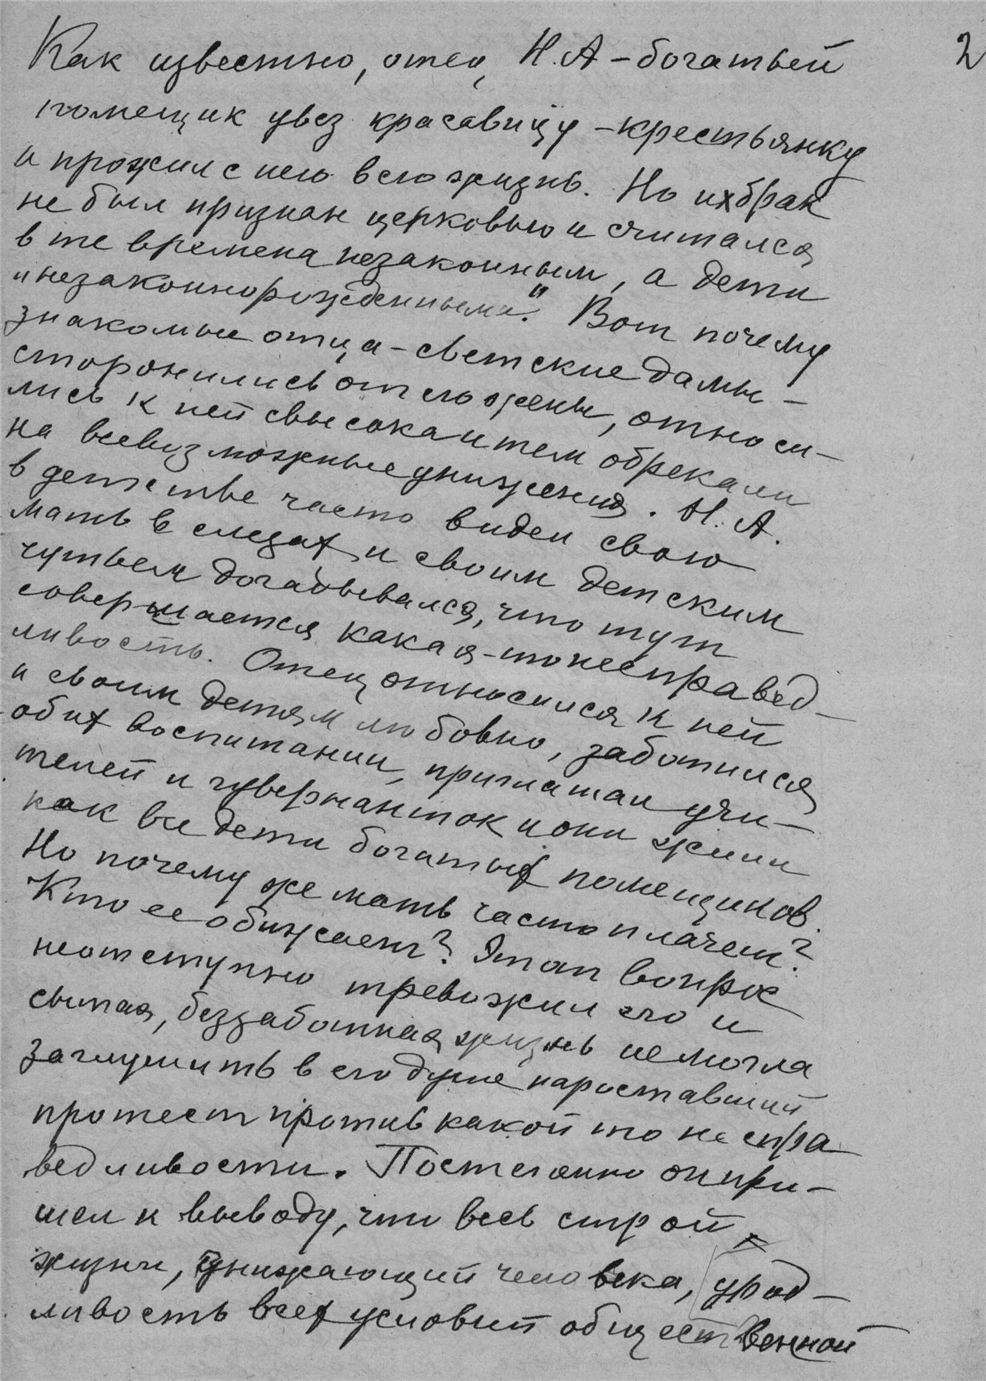 2
Как известно, отец, Н.А – богатый
помещик увез красавицу – крестьянку
и прожил с нею всю жизнь. Но их брак
не был признан церковью и считался
в те времена незаконным, а дети
"незаконнорожденными". Вот почему
знакомые отца – светские дамы –
сторонились от его жены, относи–
лись к ней свысока и тем обрекали
на всевозможные унижения. Н.А.
в детстве часто видел свою
мать в слезах и своим детским
чутьем догадывался, что тут
совершается какая-то несправед–
ливость. Отец относился к ней
и своим детям любовно, заботился
об их воспитании, приглашал учи–
телей и гувернанток и они жили
как все дети богатых помещиков.
Но почему же мать часто плачет?
Кто ее обижает? Этот вопрос
неотступно тревожил его и
сытая, беззаботная жизнь не могла
заглушить в его душе нароставший
протест против какой то неспра
ведливости. Постепенно он при–
шел к выводу, что весь строй
жизни, унижающий человека, урод–
ливость всех условий общественной